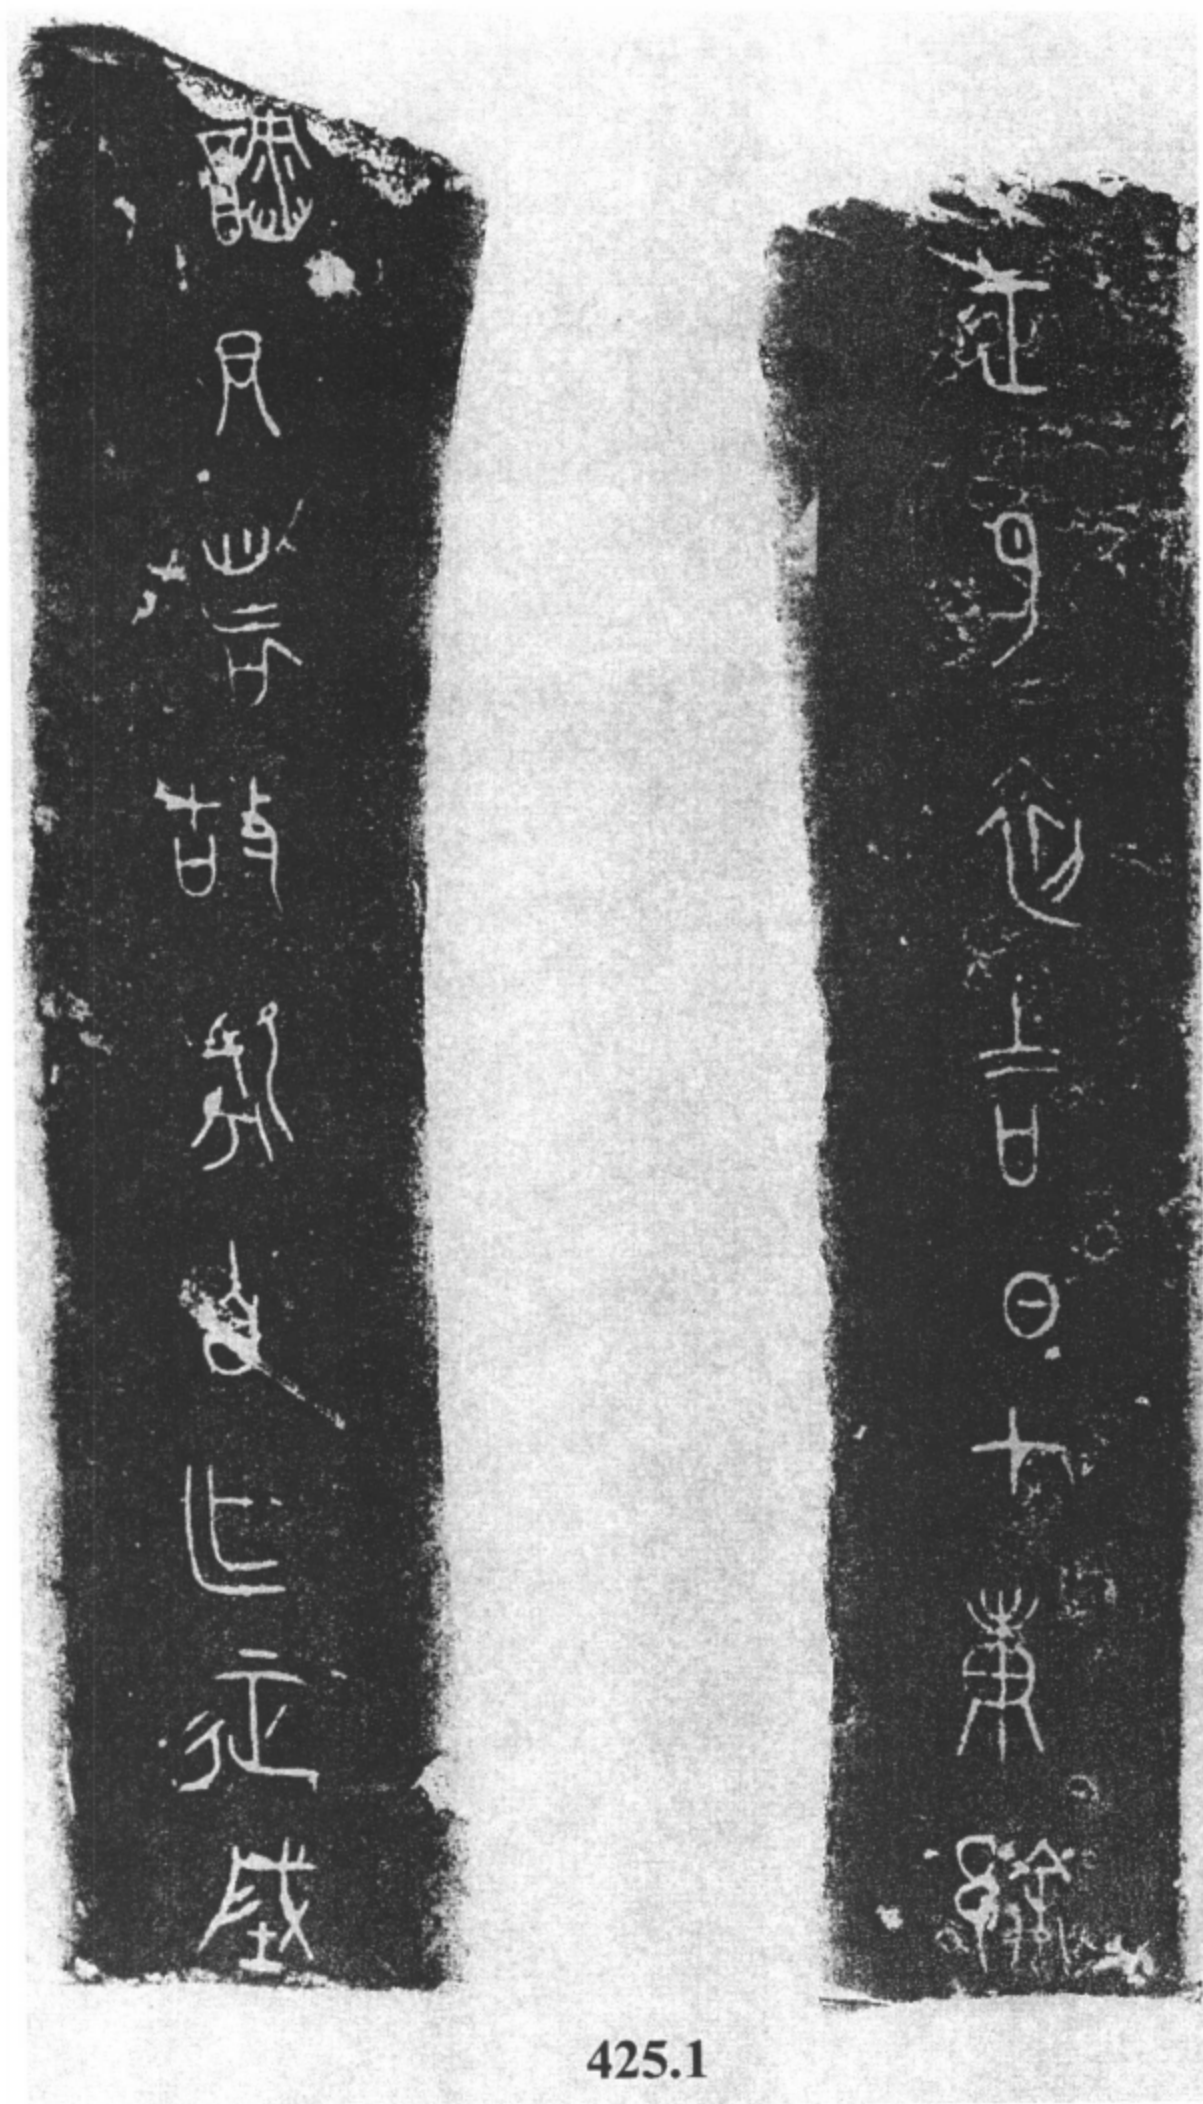 正月初吉日才庚䣄
尹者故自乍征城
425.1